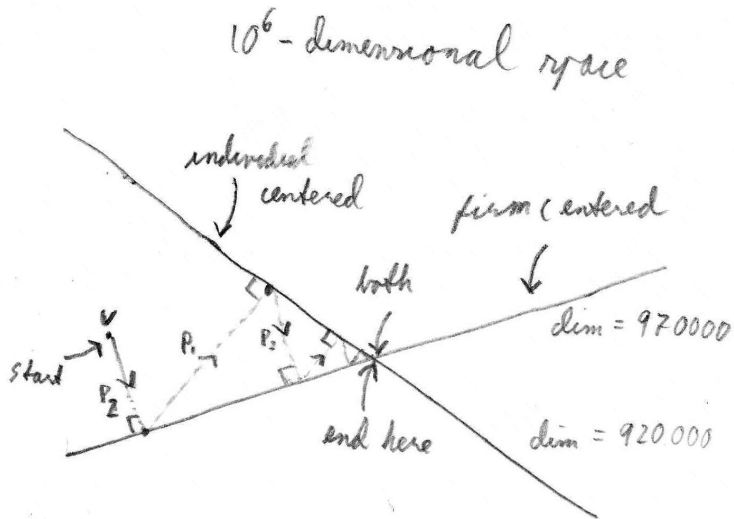 10^6 - dimensional space
individual
centered
firm centered
both
dim = 970000
v
start
P2
P1
P2
end here
dim = 920000